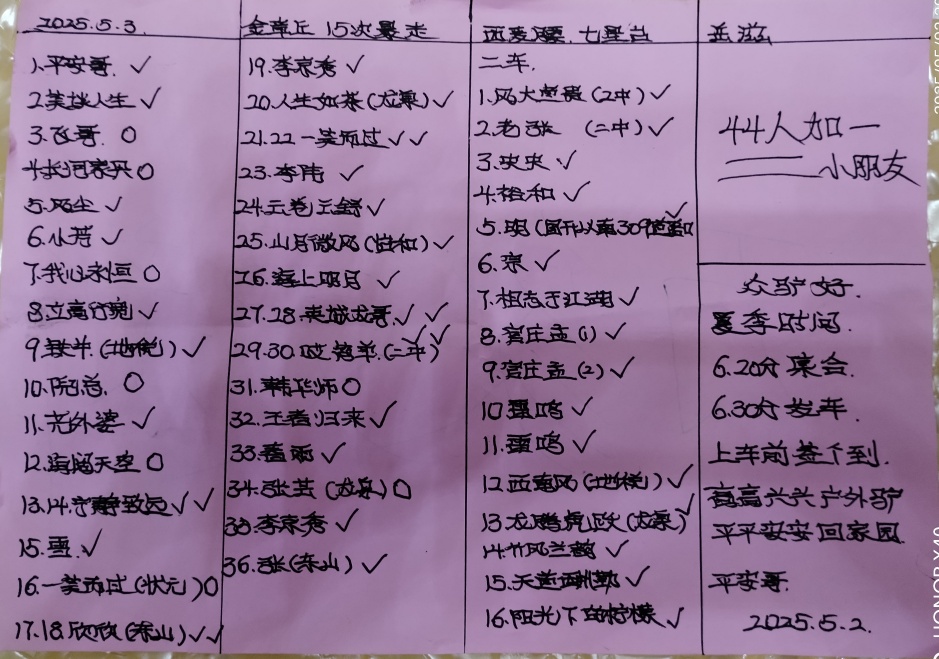 2025.5.3.
1.平安哥. ✓
2笑谈人生 ✓
3.飞哥. ○
4.长河 ○
5.风尘 ✓
6.小芳 ✓
7.我心永恒 ○
8.立高行宽 ✓
9.铁牛.(地税) ✓
10.阮总. ○
11.老外婆 ✓
12.海阔天空 ○
13.14.宁静致远 ✓ ✓
15.雪. ✓
16.一笑而过(状元) ○
17.18.欣欣(东山) ✓ ✓
金章丘 15次暴走
19.李家秀 ✓
20.人生如茶(龙泉) ✓
21.22.一笑而过 ✓ ✓
23.李伟 ✓
24.云卷云舒 ✓
25.山月微风(怡和) ✓
26.海上明月 ✓
27.28.英雄龙哥. ✓ ✓
29.30. (二中) ✓ ✓
31.韩华师 ○
32.王者归来 ✓
33.春雨 ✓
34.张芸(龙泉) ○
35.李家秀 ✓
36.张(东山) ✓
七星台
二车.
1.风大(2中) ✓
2.老张 (二中) ✓
3.央央 ✓
4.祖和 ✓
5.明 ✓
6.宗 ✓
7.相忘于江湖 ✓
8.官庄孟(1) ✓
9.官庄孟(2) ✓
10 ✓
11. ✓
12.西南风(地税) ✓
13.龙腾虎跃(龙泉) ✓
14.竹风兰韵 ✓
15.天道酬勤 ✓
16.阳光下的柠檬 ✓
44人如一
小朋友
众驴好.
夏季时间.
6.20分集合.
6.30分发车.
上车前签个到.
高高兴兴户外驴
平平安安回家园.
平安哥.
2025.5.2.